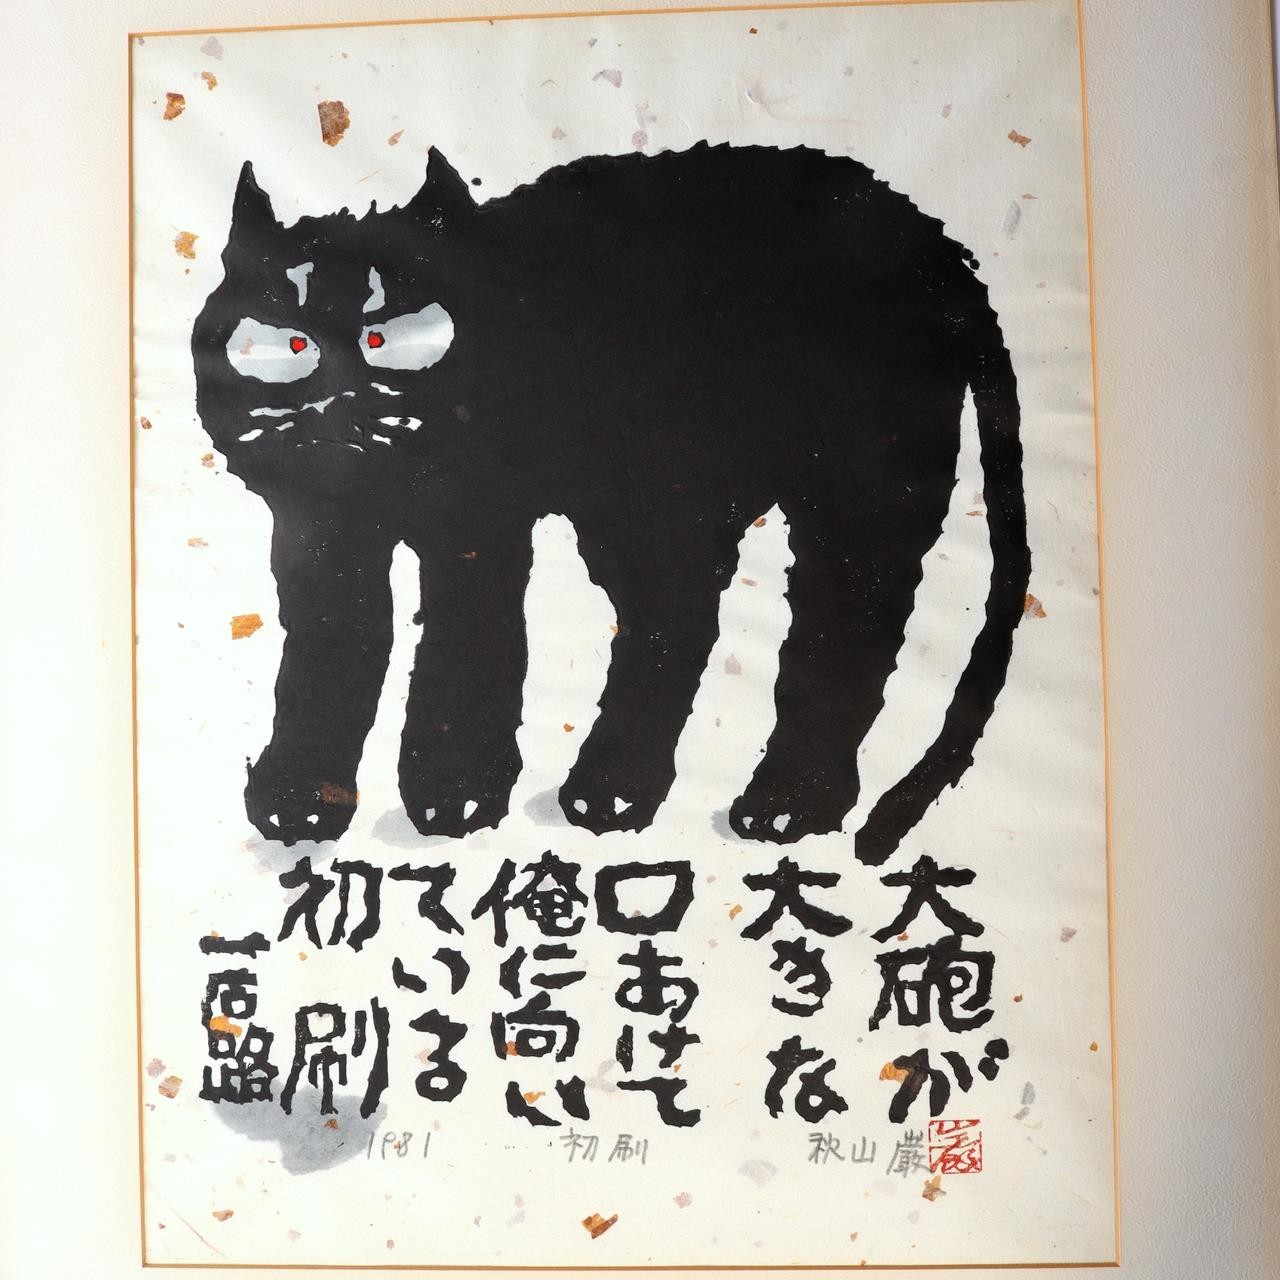 大砲が
大きな
口あけて
俺に向い
ている
初刷
一石路
1981
初刷
秋山巌
巌